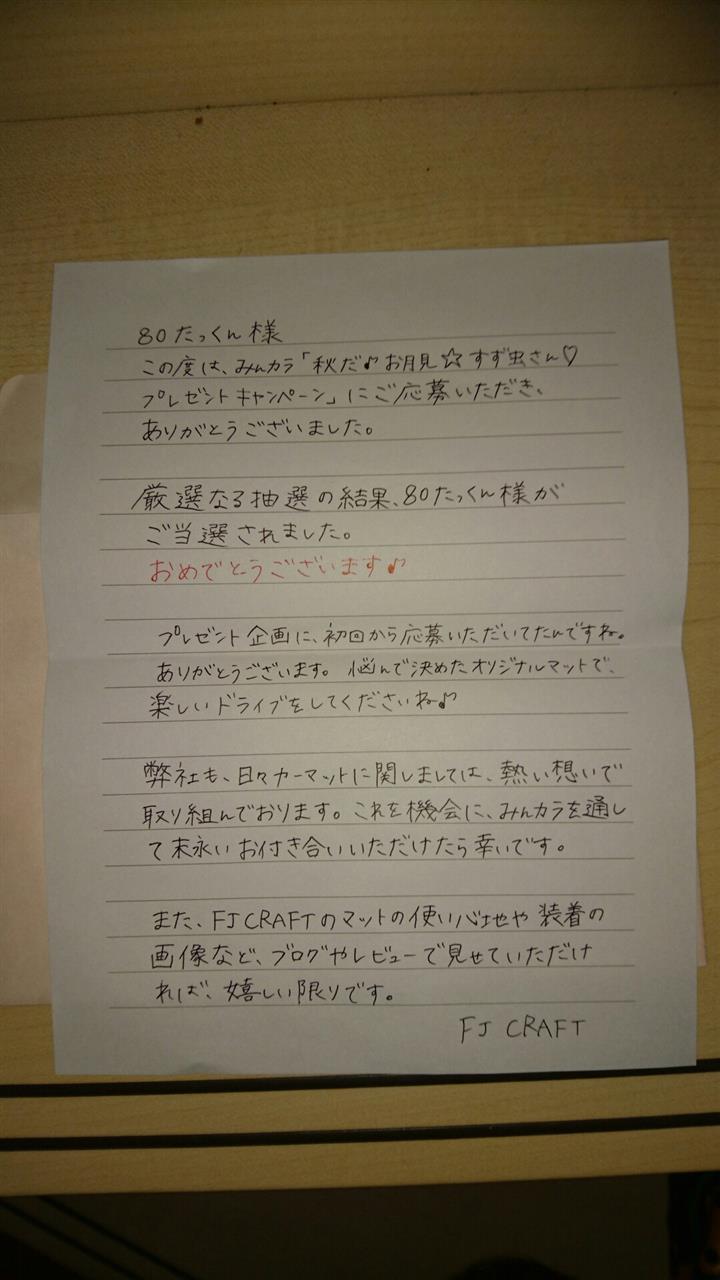 80たっくん様
この度は、みんカラ「秋だ♪お月見☆すず虫さん♡
プレゼントキャンペーン」にご応募いただき、
ありがとうございました。
厳選なる抽選の結果、80たっくん様が
ご当選されました。
おめでとうございます♪
プレゼント企画に、初回から応募いただいてたんですね。
ありがとうございます。悩んで決めたオリジナルマットで、
楽しいドライブをしてくださいね♪
弊社も、日々カーマットに関しましては、熱い想いで
取り組んでおります。これを機会に、みんカラを通し
て末永いお付き合いいただけたら幸いです。
また、FJ CRAFTのマットの使い心地や装着の
画像など、ブログやレビューで見せていただけ
れば、嬉しい限りです。
FJ CRAFT